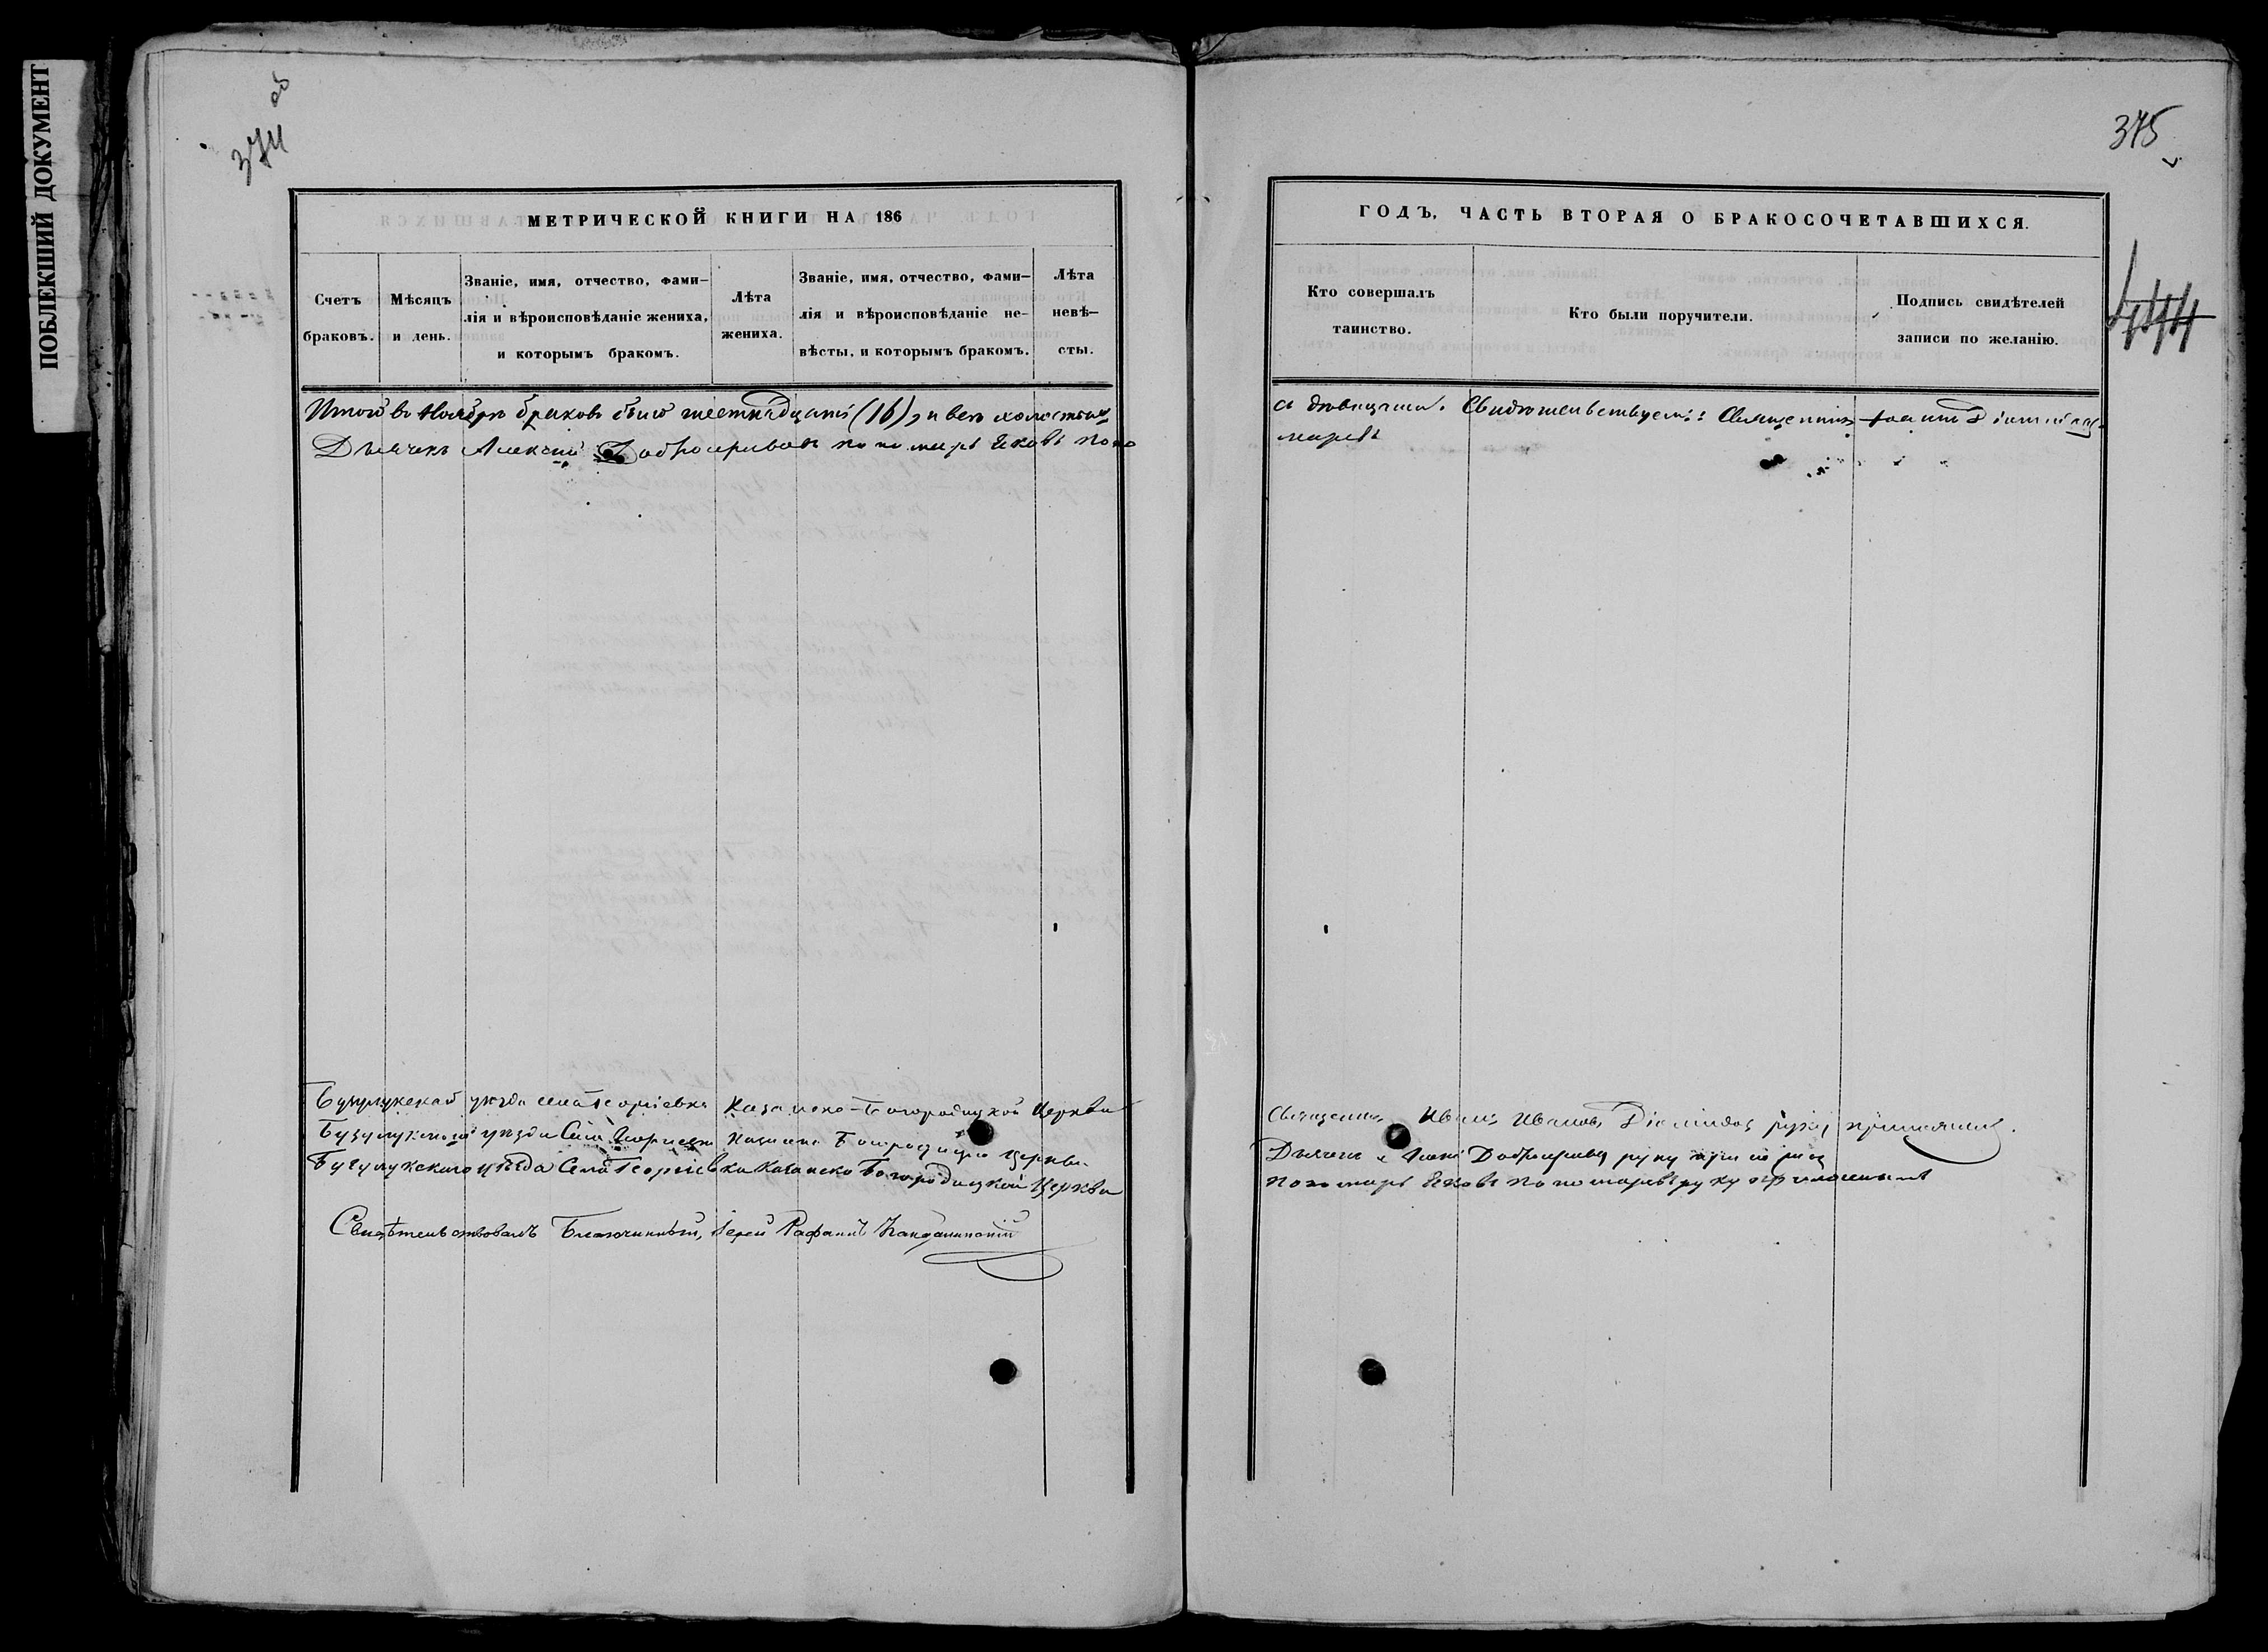 ПОБЛЕКШИЙ ДОКУМЕНТ
374 об
МЕТРИЧЕСКОЙ КНИГИ НА 186
Счетъ браковъ.
Мѣсяцъ и день.
Званіе, имя, отчество, фами-
лія и вѣроисповѣданіе жениха,
и которымъ бракомъ.
Лѣта жениха.
Званіе, имя, отчество, фами-
лія и вѣроисповѣданіе не-
вѣсты, и которымъ бракомъ.
Лѣта невѣ-
сты.
Итого въ Ноябрѣ браковъ было шестнадцать (16), и всѣ холостые
Дьячекъ Алексѣй Добросердовъ пономарь Яковъ Поно
Бузулукскаго уѣзда села Георгіевки Казанско-Богородицкой Церкви
Бузулукскаго уѣзда Села Георгіевки Казанско Богородицкой Церкви
Бузулукскаго уѣзда Села Георгіевки Казанско Богородицкой Церкви
Свидѣтельствовалъ Благочинный, Іерей
375
444
ГОДЪ, ЧАСТЬ ВТОРАЯ О БРАКОСОЧЕТАВШИХСЯ.
Кто совершалъ
таинство.
Кто были поручители.
Подпись свидѣтелей
записи по желанію.
съ дѣвицами. Свидѣтельствуемъ: Священникъ Іоаннъ
маревъ
Священникъ Иванъ Ивановъ Діомидовъ руку приложилъ.
Дьячекъ Добросердовъ руку приложилъ
пономарь Яковъ Пономаревъ руку приложилъ